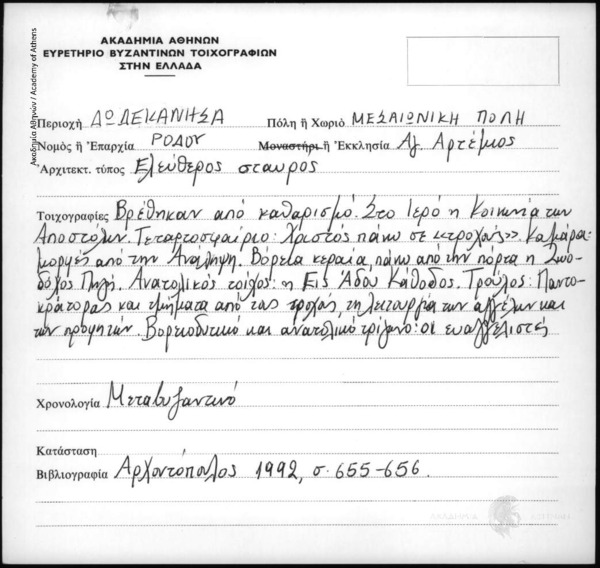 ΑΚΑΔΗΜΙΑ ΑΘΗΝΩΝ
ΕΥΡΕΤΗΡΙΟ ΒΥΖΑΝΤΙΝΩΝ ΤΟΙΧΟΓΡΑΦΙΩΝ
ΣΤΗΝ ΕΛΛΑΔΑ
Ακαδημία Αθηνών / Academy of Athens
Περιοχή ΔΩΔΕΚΑΝΗΣΑ Πόλη ἤ Χωριό ΜΕΣΑΙΩΝΙΚΗ ΠΟΛΗ
Νομός ἤ Ἐπαρχία ΡΟΔΟΥ Μοναστήρι ἤ Ἐκκλησία Αγ. Αρτέμιος
Ἀρχιτεκτ. τύπος Ελεύθερος σταυρός
Τοιχογραφίες Βρέθηκαν από καθαρισμό. Στο Ιερό η Κοινωνία των
Αποστόλων. Τεταρτοσφαίριο: Χριστός πάνω σε «τροχούς». Καμάρα:
μορφές από την Ανάληψη. Βόρεια κεραία, πάνω από την πόρτα η Ζωο-
δόχος Πηγή. Ανατολικός τοίχος: η Εις Άδου Κάθοδος. Τρούλος: Παντο-
κράτορας και τμήματα από τους τροχούς, τη λειτουργία των αγγέλων και
των προφητών. Βορειοδυτικό και ανατολικό τρίγωνο: οι ευαγγελιστές
Χρονολογία Μεταβυζαντινό
Κατάσταση
Βιβλιογραφία Αρχοντόπουλος 1992, σ. 655-656.
ΑΚΑΔΗΜΙΑ ΑΘΗΝΩΝ